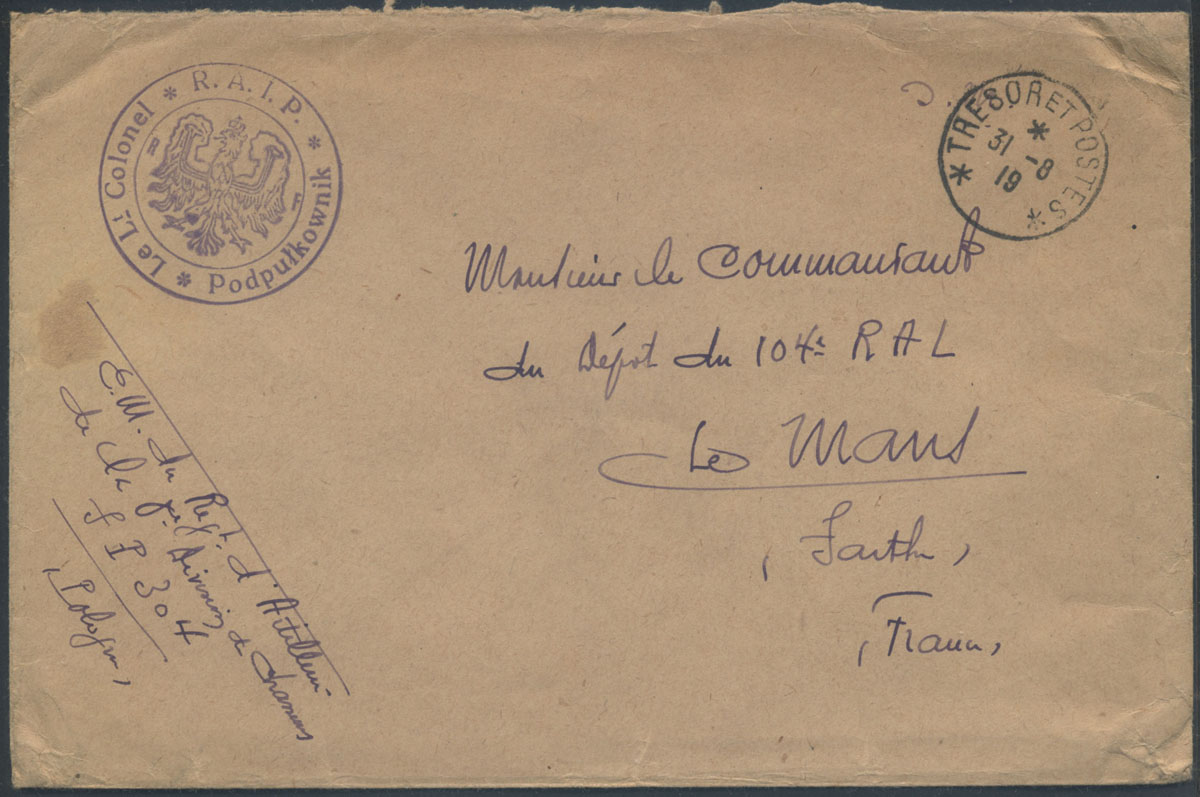 * R. A. I. P. *
Le Lt Colonel
* Podpułkownik
R F
* TRESOR ET POSTES *
*
31 -8
19
Monsieur le Commandant
du Dépôt du 104e R A L
Le Mans
(Sarthe)
(France)
E. M. du Regt. d'Artillerie
de la Division de Chasseurs
S P 304
(Pologne)